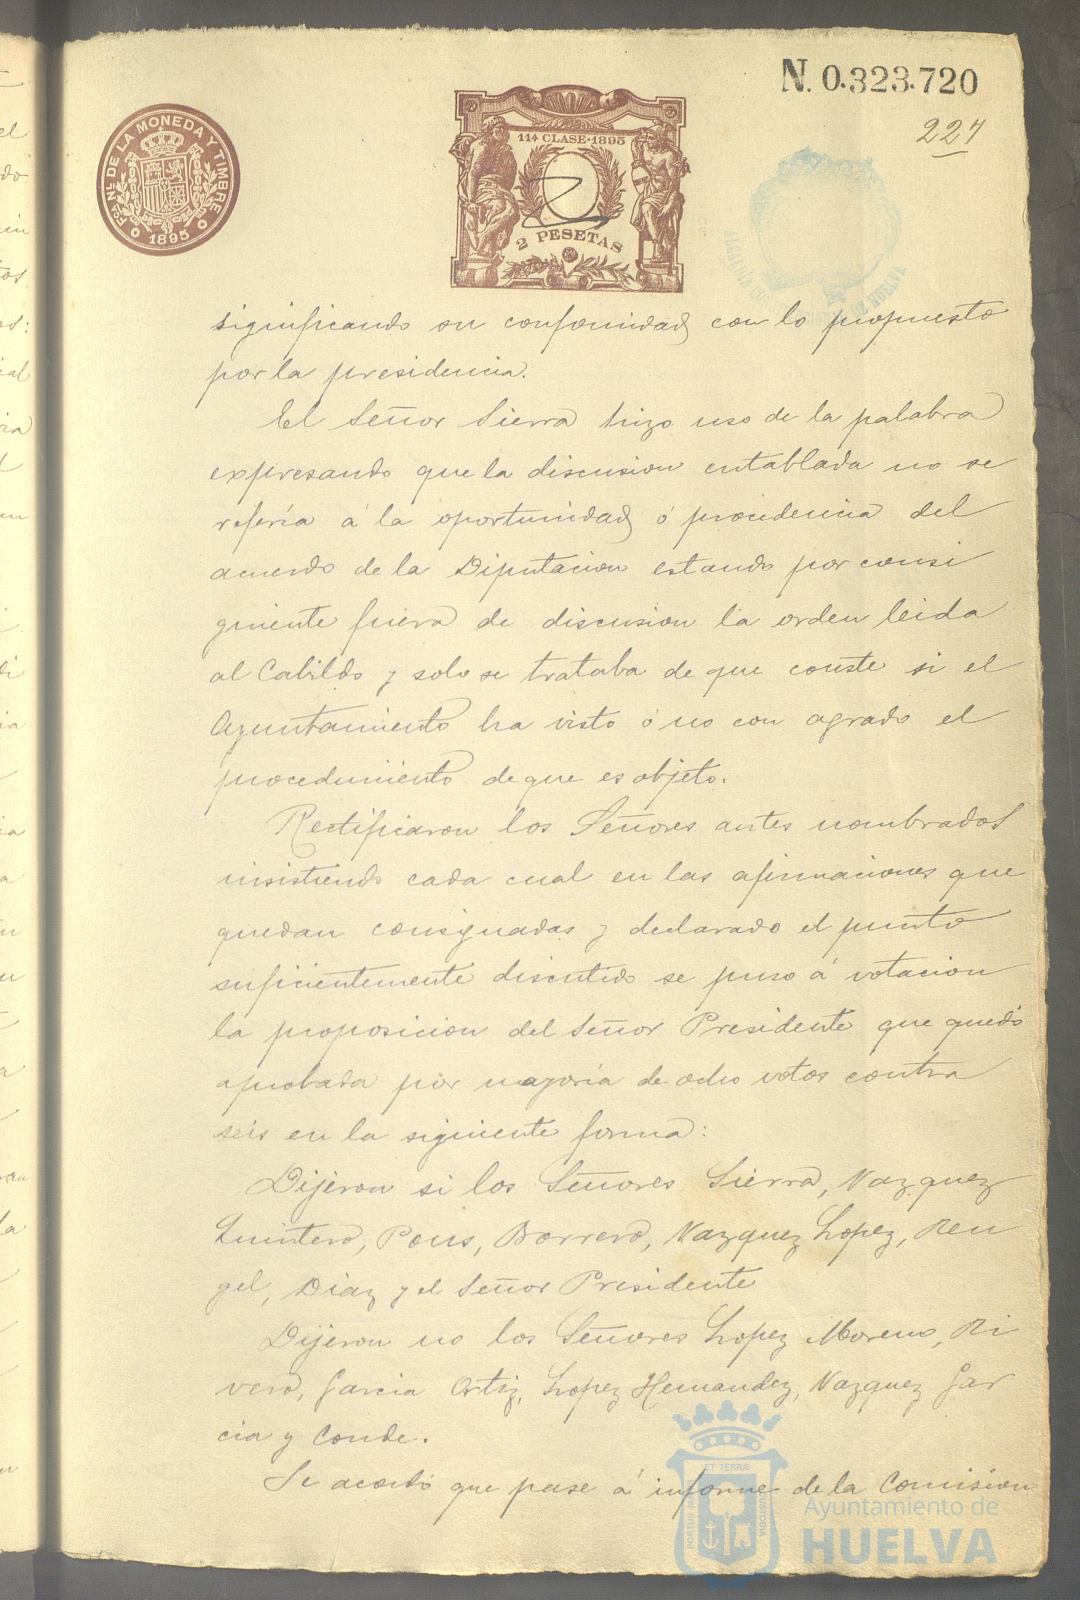 N. 0.323.720
227
FCA. NL. DE LA MONEDA Y TIMBRE
1895
11ª CLASE·1895
2 PESETAS
ALCALDIA CONSTITUCIONAL DE HUELVA
significando su conformidad con lo propuesto
por la presidencia.
El Señor Sierra hizo uso de la palabra
expresando que la discusion entablada no se
refería á la oportunidad ó procedencia del
acuerdo de la Diputacion estando por consi
guiente fuera de discusion la orden leida
al Cabildo y solo se trataba de que conste si el
Ayuntamiento ha visto ó no con agrado el
procedimiento de que es objeto.
Rectificaron los Señores antes nombrados
insistiendo cada cual en las afirmaciones que
quedan consignadas y declarado el punto
suficientemente discutido se puso á votacion
la proposicion del Señor Presidente que quedó
aprobada por mayoría de ocho votos contra
seis en la siguiente forma:
Dijeron si los Señores Sierra, Vazquez
Quintero, Pons, Borrero, Vazquez Lopez, Ren
gel, Diaz y el Señor Presidente
Dijeron no los Señores Lopez Moreno, Ri
vero, Garcia Ortiz, Lopez Hernandez, Vazquez Gar
cia y Conde.
Se acordó que pase á informe de la Comision
PORTUS MARIS ET TERRAE CUSTODIA
Ayuntamiento de
HUELVA